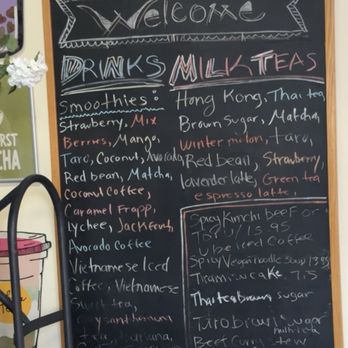 Welcome
DRINKS
Smoothies:
Strawberry, Mix
Berries, Mango,
Taro, Coconut, Avocado
Red bean, Matcha,
Coconut Coffee,
Caramel Frapp,
Lychee, Jackfruit,
Avocado Coffee
Vietnamese Iced
Coffee, Vietnamese
tea,
Chrysanthemum
MILK TEAS
Hong Kong, Thai tea
Brown Sugar, Matcha,
Winter melon, taro,
Red bean, Strawberry,
lavender latte, Green tea
espresso latte,
Spicy Kimchi BeeF or
Tofu / 15.95
Ube Iced Coffee
Spicy Veggie noodle Soup 13.95
Tiramisu cake 7.5
Thai tea brown sugar
Taro brown sugar
milk tea
Beef Curry Stew